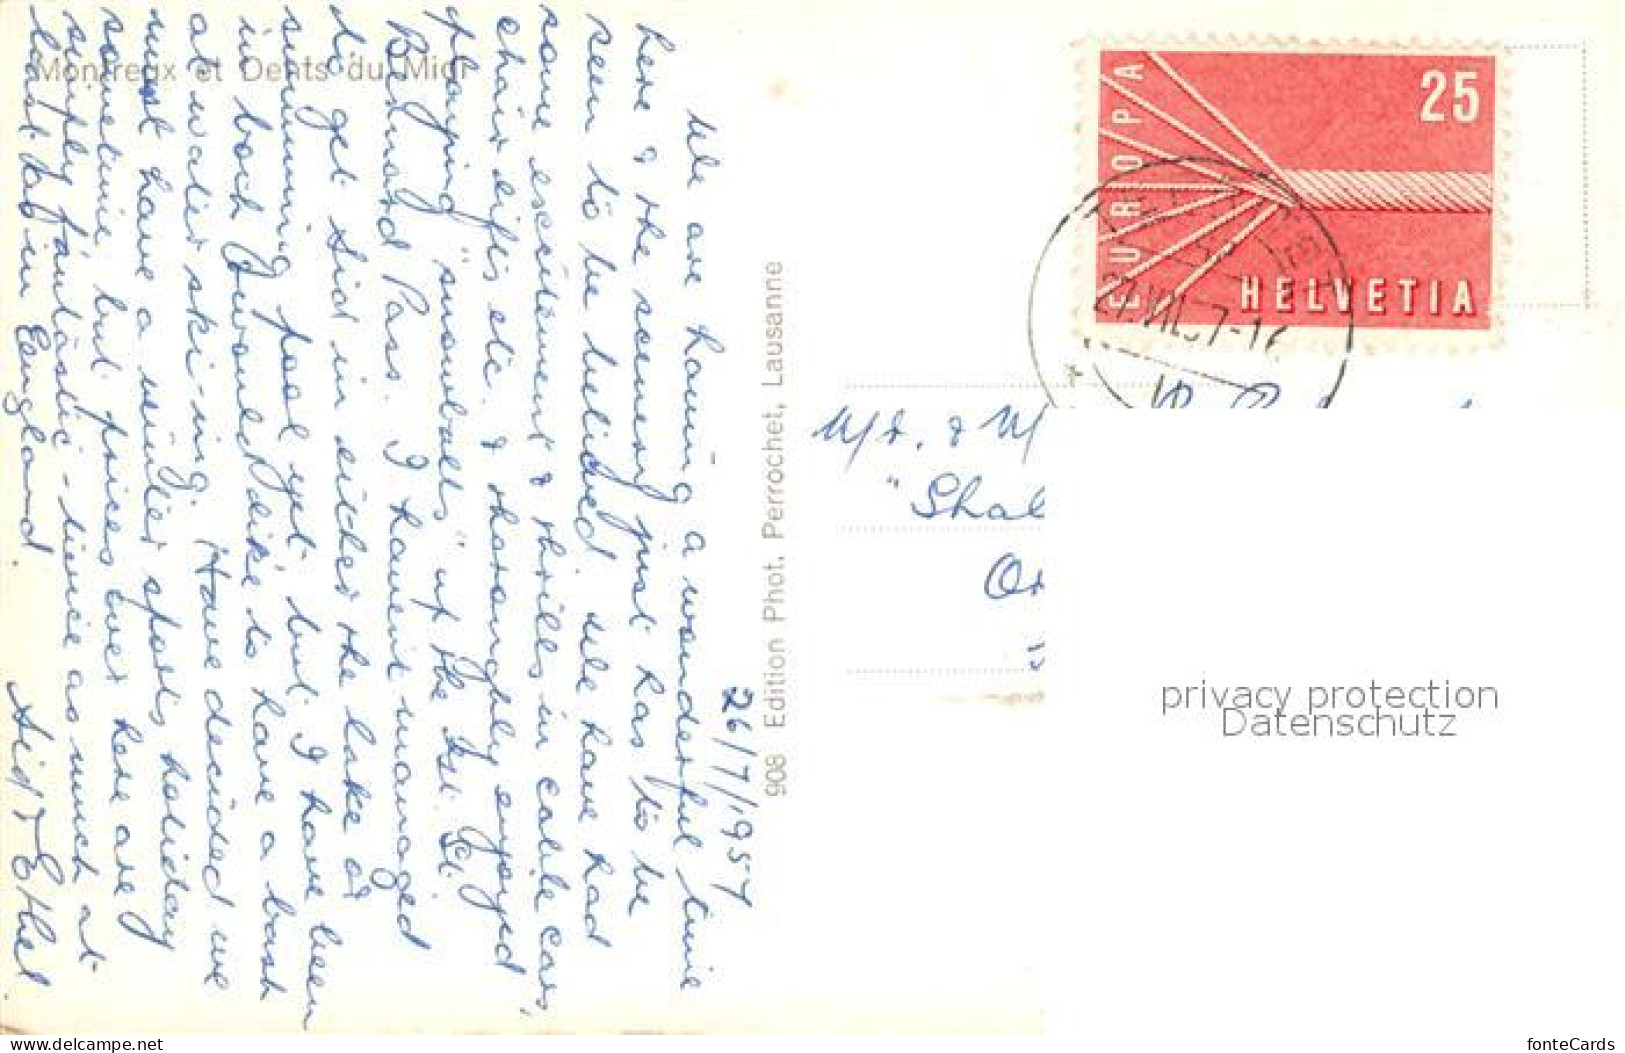 Montreux et Dents du Midi
26/7/1957
We are having a wonderful time
here & the scenery just has to be
seen to be believed. We have had
some excitement & thrills in cable cars,
chair lifts etc. & thoroughly enjoyed
playing "snowballs" up the Gt. St.
Bernard Pass. I havent managed
to get Sid in either the lake or
swimming pool yet but I have been
in both & would like to have a bash
at water ski-ing. Have decided we
must have a winter sports holiday
sometime but prices over here are
simply fantastic - twice as much at
least as in England.
Sid & Ethel.
908 Edition Phot. Perrochet, Lausanne
EUROPA
25
HELVETIA
27.VII.57-16
M/r. & M/
"Shal
Or
privacy protection
Datenschutz
www.delcampe.net
fonteCards